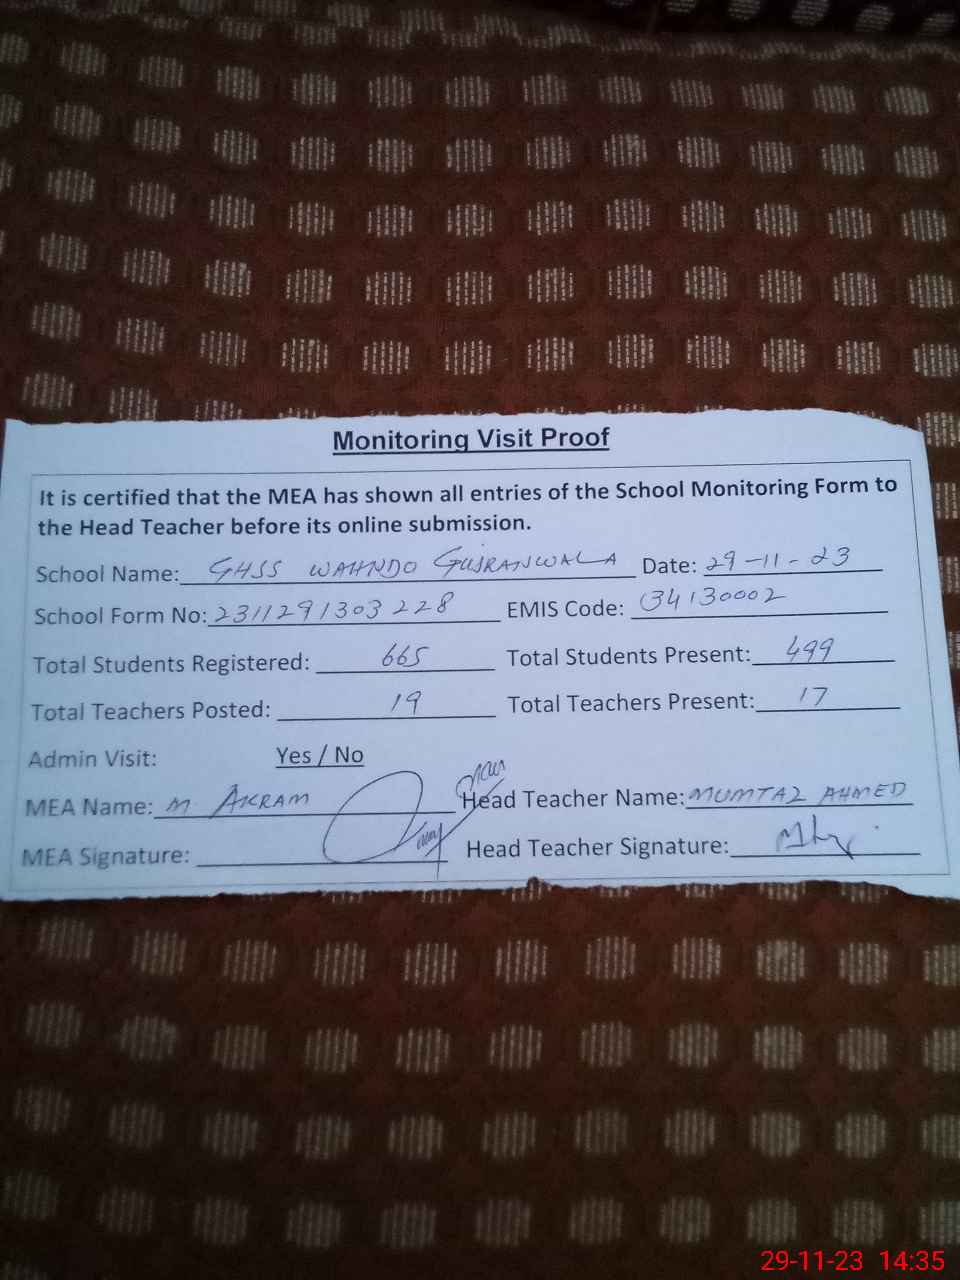 Monitoring Visit Proof
It is certified that the MEA has shown all entries of the School Monitoring Form to
the Head Teacher before its online submission.
School Name: GHSS WAHNDO GUJRANWALA Date: 29-11-23
School Form No: 2311291303228 EMIS Code: 34130002
Total Students Registered: 665 Total Students Present: 499
Total Teachers Posted: 19 Total Teachers Present: 17
Admin Visit: Yes / No
MEA Name: M. AKRAM Head Teacher Name: MUMTAZ AHMED
MEA Signature: Head Teacher Signature:
29-11-23 14:35